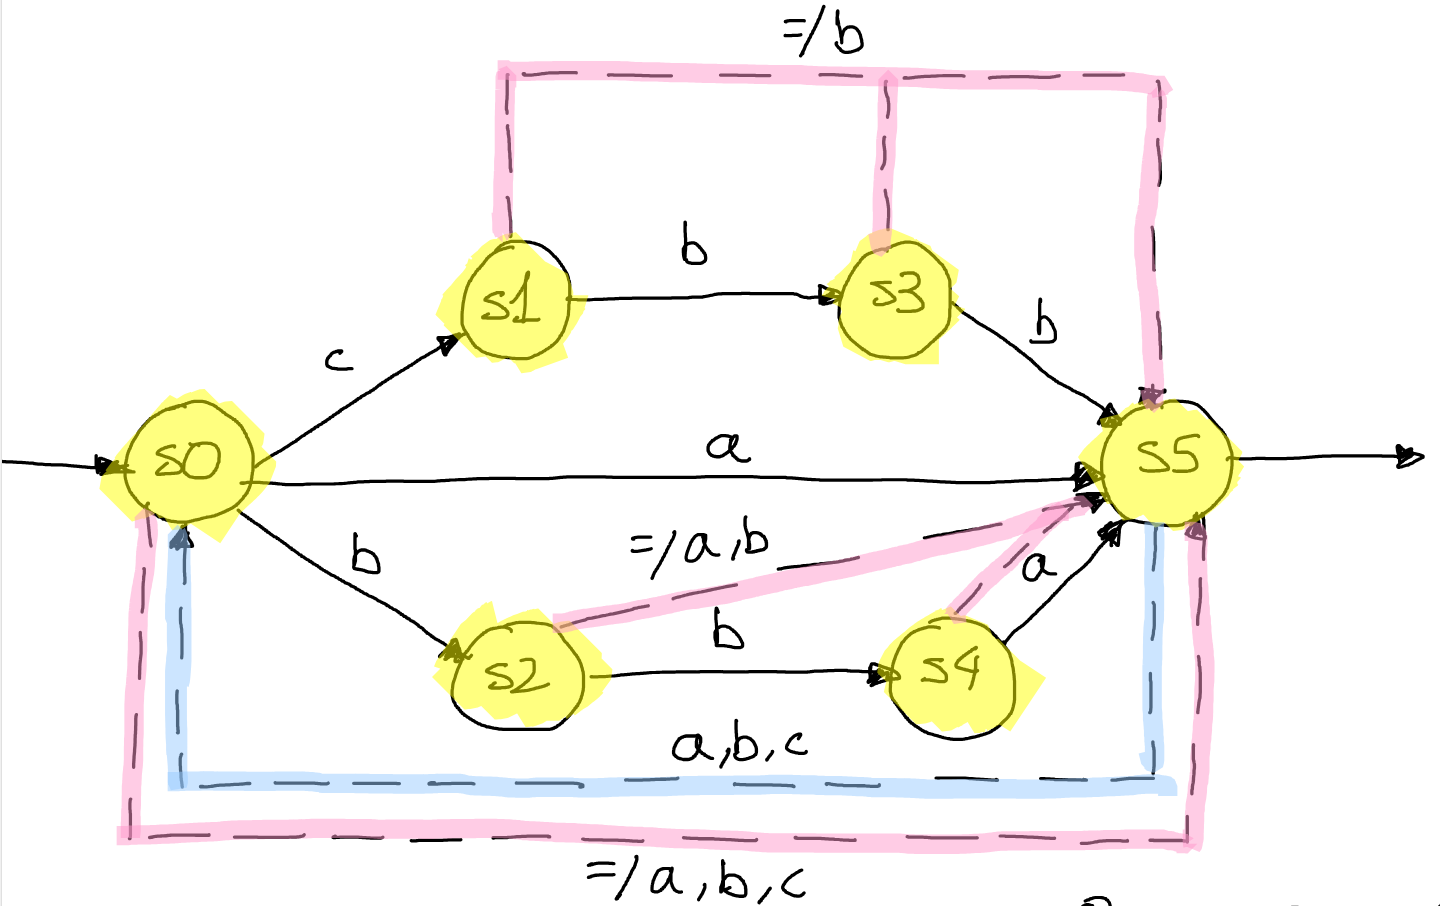 =/b
b
s1
s3
b
c
s0
a
s5
=/a,b
b
a
b
s2
s4
a,b,c
=/a,b,c